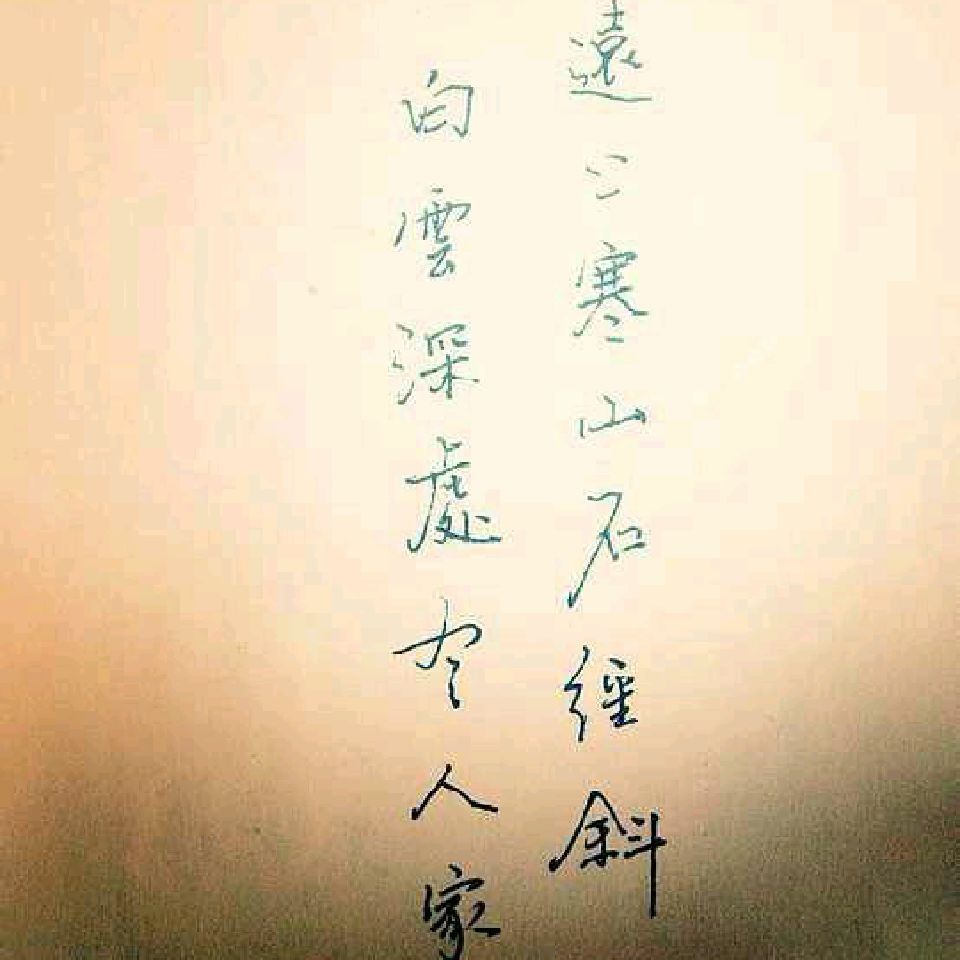 遠上寒山石徑斜
白雲深處有人家